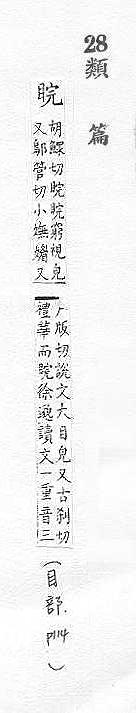 28 類篇
睆
胡鰥切睆睆窮視皃
又鄔管切小嫵媚又
戶版切說文大目皃又古刹切
禮華而睆徐邈讀文一重音三
(目部. p114)